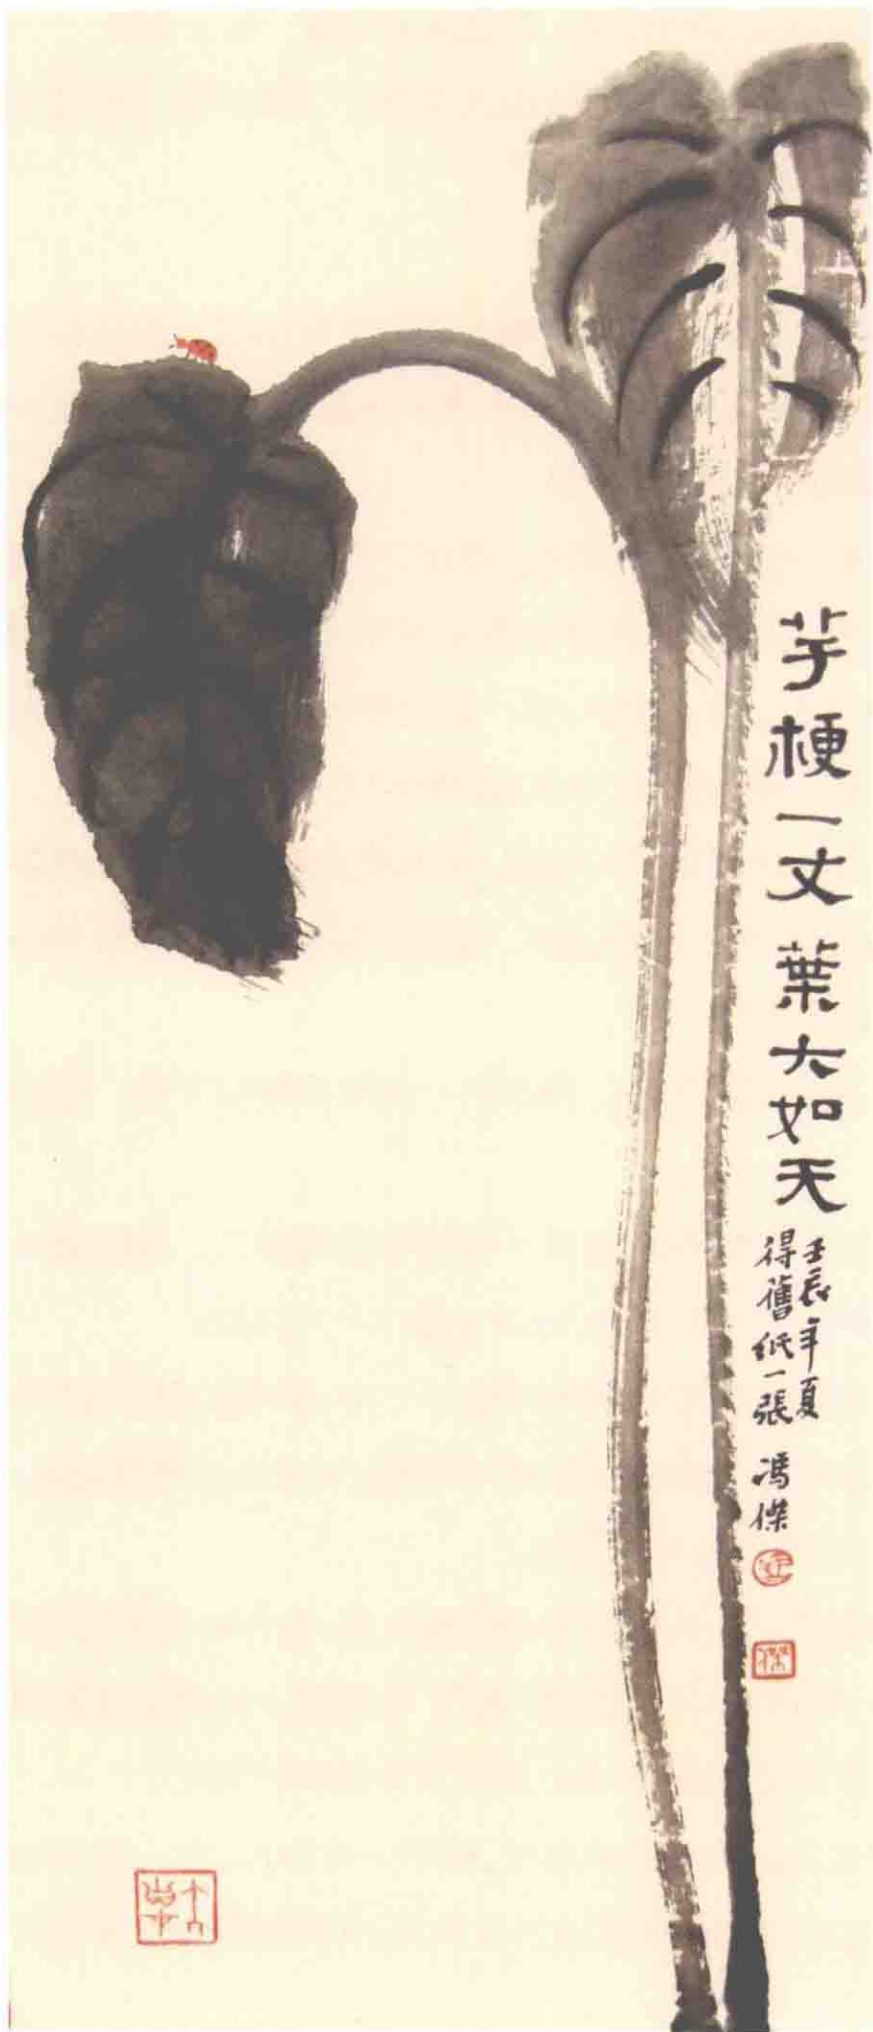 芋梗一丈葉大如天
壬辰年夏
得舊紙一張 馮傑
傑